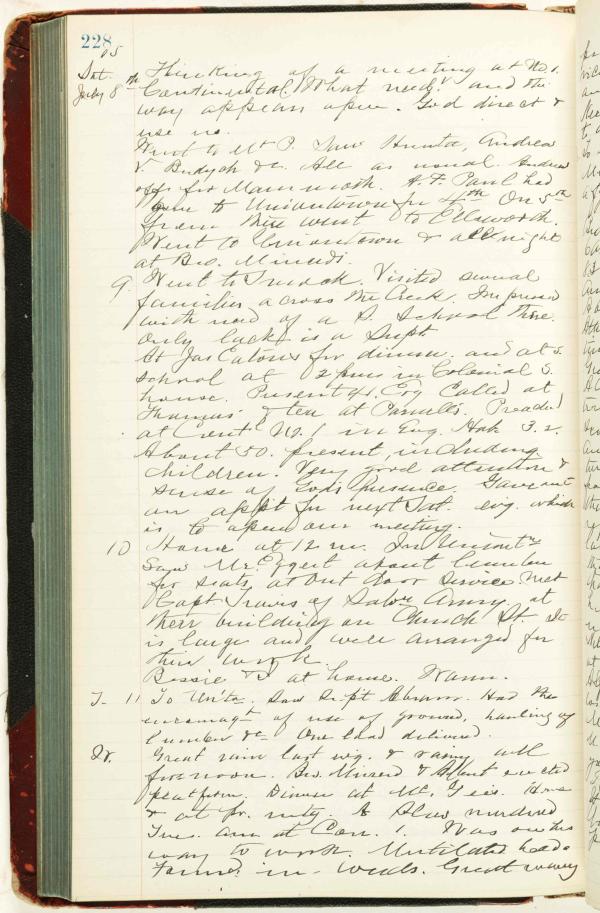 228
05
Sat. Thinking of a meeting at No 1.
July 8th Continental. What need! and the
way appears open. God direct &
use us.
Went to Mt P. Saw Hunter, Andrew
V. &c. All as usual. Andrew
off for Mammoth. A. F. Paul had
gone to Uniontown for 4th. On 5th
from there went to Ellsworth.
Went to Uniontown & all night
at Bro.
9. Went to Smock. Visited several
families across the Creek. Impressed
with need of a S. School there.
Only lack is a Supt.
At Jas Eatons for dinner and at S.
school at 2 pm in Colonial S.
house. Present 41. Evg Called at
Thomas' & tea at Parnells. Preached
at Cont. No. 1 in Evg. Hab 3.2.
About 50 present, including
children. Very good attention &
sense of God's presence. Gave out
an appt for next Sat. evg. which
is to open our meeting.
10 Home at 12 m. In
Saw Mr. about lumber
for seats at out door service. Met
Capt Travis of Salvn Army at
their building on Church St. It
is large and well arranged for
their work.
Bessie & I at home. Warm.
T. 11 To Un'tn. Saw Supt. Had the
encouragmt of use of ground, hauling of
lumber &c. One load delivered.
Great rain last evg. & rainy all
forenoon. Bro. & Albert erected
platform. Dinner at Mt.
& at pr. mtg. A Slav murdered
Tues. am at Con. 1. Was on his
way to work. Mutilated head.
Found in weeds. Great many